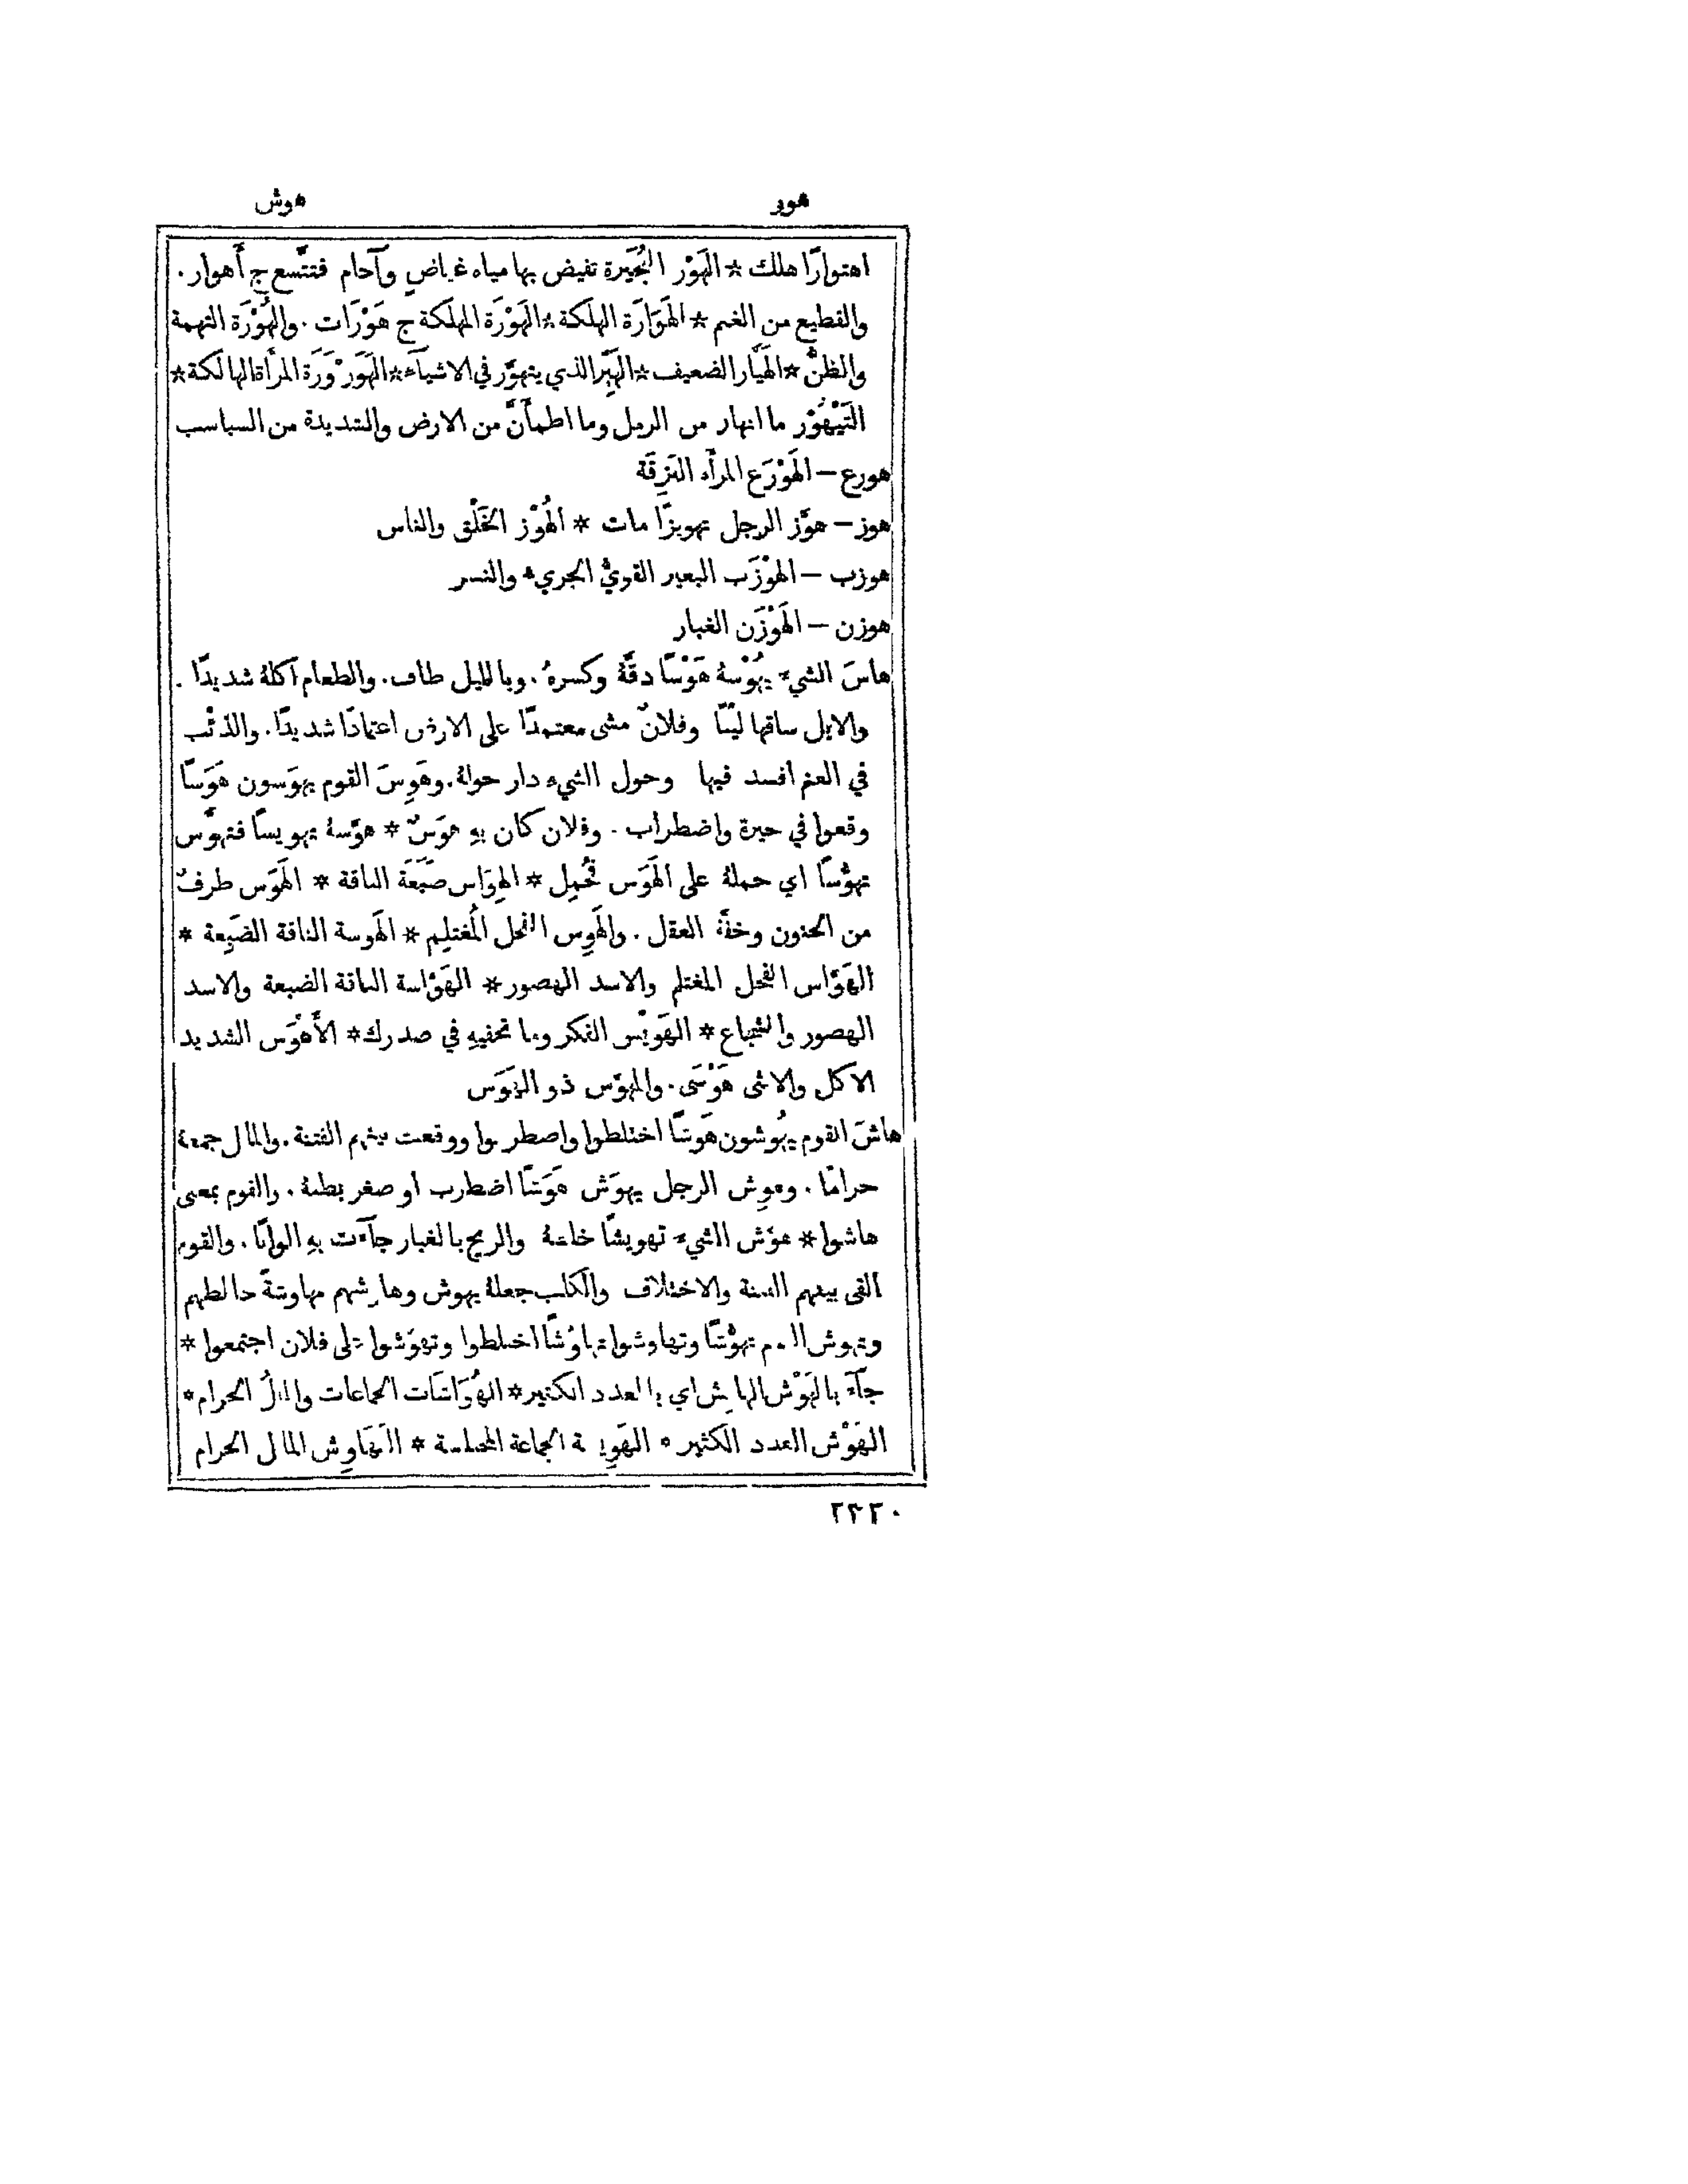 هور هوش
اهتوارًا هلك * الهَوْر البُحَيرة تفيض بها مياه غياضٍ وآجام فتتَّسع ج أَهوار.
والقطيع من الغنم * الهَوَارَة الهلَكة * الهَوْرَة المهلَكة ج هَوْرَات. والهُوْرَة التهمة
والظنُّ * الهَيَّار الضعيف * الهَيِّر الذي يتهوَّر في الاشيآء * الهَوَرْوَرَة المرأَة الهالكة *
التَيْهُوْر ما انهار من الرمل وما اطمأَنَّ من الارض والشديدة من السباسب
هورع – الهَوْرَع المرأَة النزِقَة
هوز – هوَّز الرجل تهويزًا مات * الهُوْز الخَلْق والناس
هوزب – الهوْزَب البعير القويُّ الجريء والنسر
هوزن – الهَوْزَن الغبار
هاسَ الشيء يهُوْسهُ هَوْسًا دقَّهُ وكسرهُ. وبالليل طاف. والطعام اكلهُ شديدًا.
والابل ساقها ليّنًا وفلانٌ مشى معتمدًا على الارض اعتمادًا شديدًا. والذئب
في الغنم افسد فيها وحول الشيء دار حولهُ. وهَوِسَ القوم يهوَسون هَوَسًا
وقعوا في حيرة واضطراب. وفلان كان بهِ هوَسٌ * هوَّسهُ تهويسًا فتهوَّس
تهوُّسًا اي حملهُ على الهَوَس فحُمِل * الهِوَاس ضَبَعَة الناقة * الهَوَس طرفٌ
من الجنون وخفَّة العقل. والهَوِس الفحل المُغتلِم * الهَوسة الناقة الضَبِعة *
الهَوَّاس الفحل المغتلم والاسد الهصور * الهَوَّاسة الناقة الضبعة والاسد
الهصور والشجاع * الهَوِيْس الفكر وما تخفيهِ في صدرك * الأَهْوَس الشديد
الاكل والانثى هَوْسَى. والمهوّس ذو الهَوَس
هاشَ القوم يهُوشون هَوشًا اختلطوا واضطربوا ووقعت بينهم الفتنة. والمال جمعهُ
حرامًا. وهوِش الرجل يهوَش هَوَشًا اضطرب او صغر بطنهُ. والقوم بمعنى
هاشوا * هوَّش الشيء تهويشًا خلطهُ والريح بالغبار جآءت بهِ الوانًا. والقوم
القى بينهم الفتنة والاختلاف والكلب جعلهُ يهوش وهاوشهم مهاوشةً خالطهم
وتهوش القوم تهوُّشًا وتهاوشوا تهاوُشًا اختلطوا وتهوَّشوا على فلان اجتمعوا *
جآءَ بالهَوْش الهايش اي بالعدد الكثير * الهُوَاشَات الجماعات والمالُ الحرام *
الهَوْش العدد الكثير * الجماعة المختلطة * التهَاوِش المال الحرام
٢٤٢٠